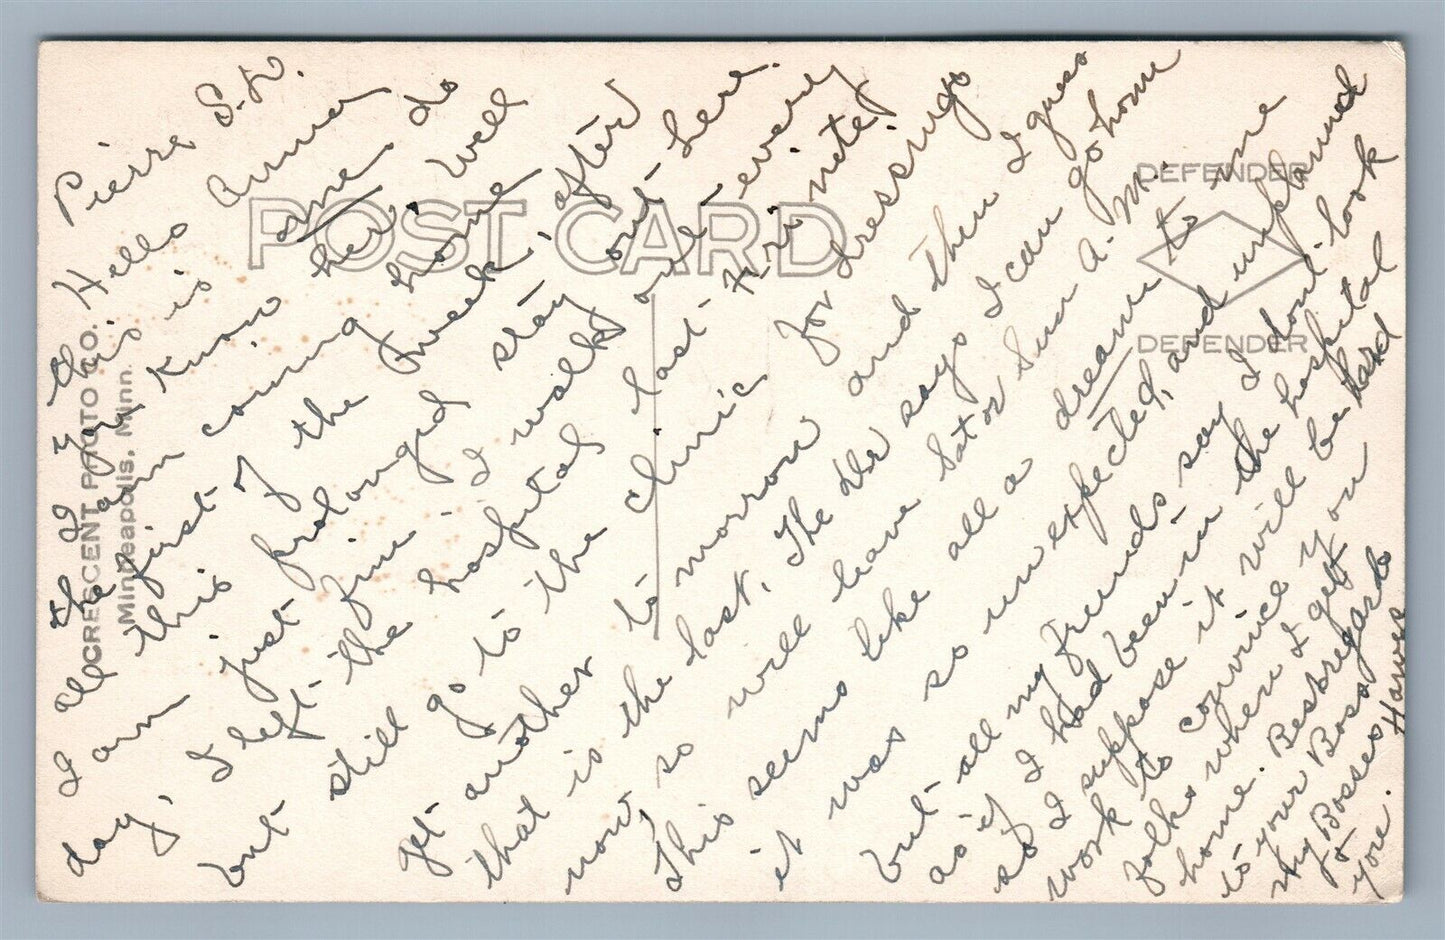 Pierre S.D.
Hello Anna
this is me. do
I you know here. Well
the I am coming home
I'll first of the week, after
all this prolonged stay out here.
I am just fine - I walk every
day, I left the hospital last
but still go to the clinic for dressings
get another to morrow and then I guess
that is the last. The Dr says I can go home
now, so will leave Sat or Sun A.M.
This seems like all a dream to me
it was so unexpected, and unplanned
but all my friends say I don't look
as if I had been in the hospital
so I suppose it will be hard
work to convince you
folks when I get
home. Best regards
to your Boss
my Bosses
&
you. Hawse
POST CARD
DEFENDER
DEFENDER
CRESCENT PHOTO CO.
Minneapolis, Minn.